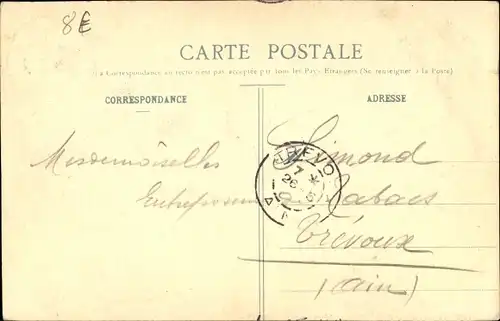 8€
CARTE POSTALE
La Correspondance au recto n'est pas acceptée par tous les Pays Étrangers (Se renseigner à la Poste)
CORRESPONDANCE
ADRESSE
Mesdemoiselles Simond
Tabacs
Trévoux
(Ain)
TREVO
7
26